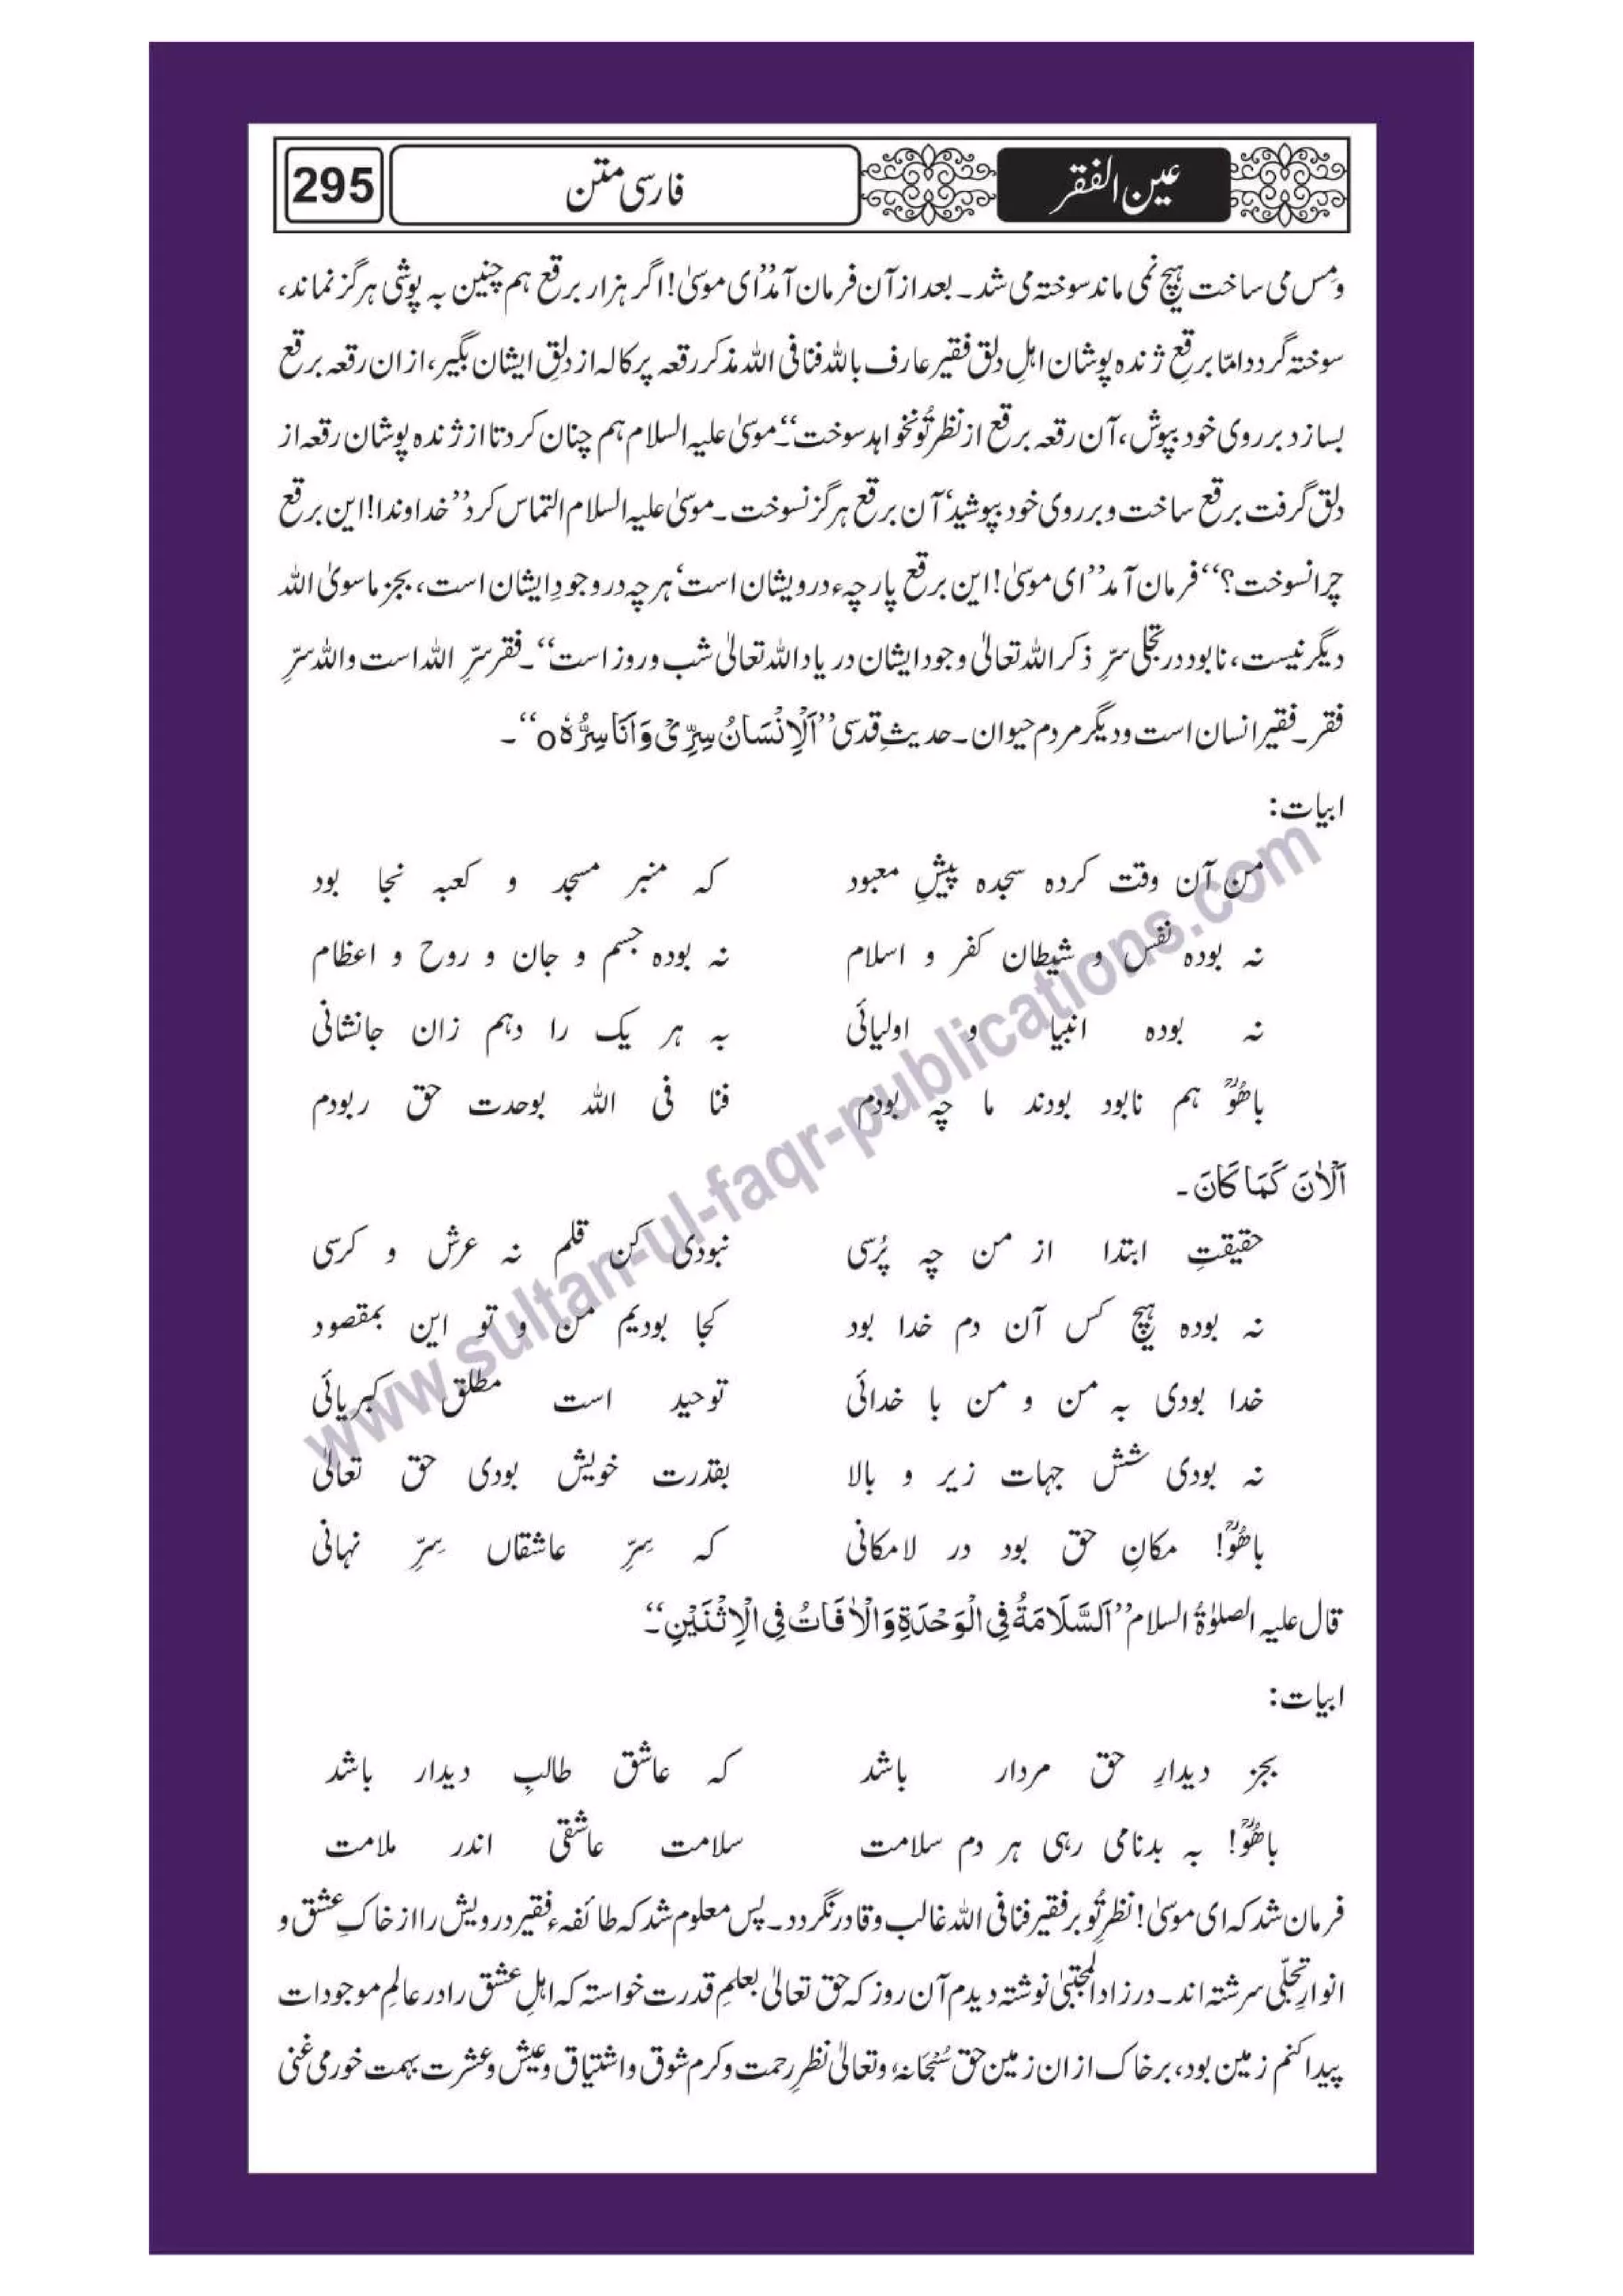 عین الفقر
فارسی متن
295
ومِس می ساخت ہیچ نمی ماند سوختہ می شد۔ بعد از آن فرمان آمد’’ای موسیٰ! اگر ہزار برقع ہم چنین بہ پوشی ہرگز نماند،
سوختہ گردد امّا برقعِ ژندہ پوشان اہلِ دلق فقیر عارف باللہ فنا فی اللہ مذکر رقعہ پرکالہ از دلقِ ایشان بگیر، از ان رقعہ برقع
بسازد بر روی خود بپوش، آن رقعہ برقع از نظرِ تُو نخواہد سوخت‘‘۔ موسیٰ علیہ السلام ہم چنان کرد تا از ژندہ پوشان رقعہ از
دلق گرفت برقع ساخت و بر روی خود بپوشید‘ آن برقع ہرگز نسوخت۔ موسیٰ علیہ السلام التماس کرد’’خداوندا! این برقع
چرا نسوخت؟‘‘ فرمان آمد’’ای موسیٰ! این برقع پارچہء درویشان است‘ ہرچہ در وجودِ ایشان است، بجز ماسویٰ اللہ
دیگر نیست، نابود در تجلی سرِّ ذکر اللہ تعالیٰ وجود ایشان در یاد اللہ تعالیٰ شب و روز است‘‘۔ فقر سرِّ اللہ است واللہ سرِّ
فقر۔ فقیر انسان است و دیگر مردم حیوان۔ حدیثِ قدسی’’اَلْاِنْسَانُ سِرِّیْ وَ اَنَا سِرُّہٗ o‘‘۔
ابیات:
من آن وقت کردہ سجدہ پیشِ معبود کہ منبر مسجد و کعبہ نجا بود
نہ بودہ نفس و شیطان کفر و اسلام نہ بودہ جسم و جان و روح و اعظام
نہ بودہ انبیا و اولیائی بہ ہر یک را دہم زان جانشانی
باھُوؒ ہم نابود بودند ما چہ بودم فنا فی اللہ بوحدت حق ربودم
اَلْاٰنَ کَمَا کَانَ۔
حقیقتِ ابتدا از من چہ پُرسی نبودی کن قلم نہ عرش و کرسی
نہ بودہ ہیچ کس آن دم خدا بود کجا بودیم من و تو این بمقصود
خدا بودی بہ من و من با خدائی توحید است مطلق کبریائی
نہ بودی شش جہات زیر و بالا بقدرت خویش بودی حق تعالیٰ
باھُوؒ! مکانِ حق بود در لامکانی کہ سِرِّ عاشقاں سِرِّ نہانی
قال علیہ الصلوٰۃُ السلام’’اَلسَّلَامَۃُ فِی الْوَحْدَۃِ وَالْاٰفَاتُ فِی الْاِثْنَیْنِ‘‘۔
ابیات:
بجز دیدارِ حق مردار باشد کہ عاشق طالبِ دیدار باشد
باھُوؒ! بہ بدنامی رہی ہر دم سلامت سلامت عاشقی اندر ملامت
فرمان شد کہ ای موسیٰ! نظرِ تُو بر فقیر فنا فی اللہ غالب و قادر نگردد۔ پس معلوم شد کہ طائفہء فقیر درویش را از خاکِ عشق و
انوارِ تجلّی سرشتہ اند۔ در زاد المجتبیٰ نوشتہ دیدم آن روز کہ حق تعالیٰ بعلمِ قدرت خواستہ کہ اہلِ عشق را در عالمِ موجودات
پیدا کنم زمین بود، بر خاک از ان زمین حق سُبْحَانَہٗ وتعالیٰ نظرِ رحمت و کرم شوق و اشتیاق و عیش و عشرت بہمت خورمی غنی
www.sultan-ul-faqr-publications.com